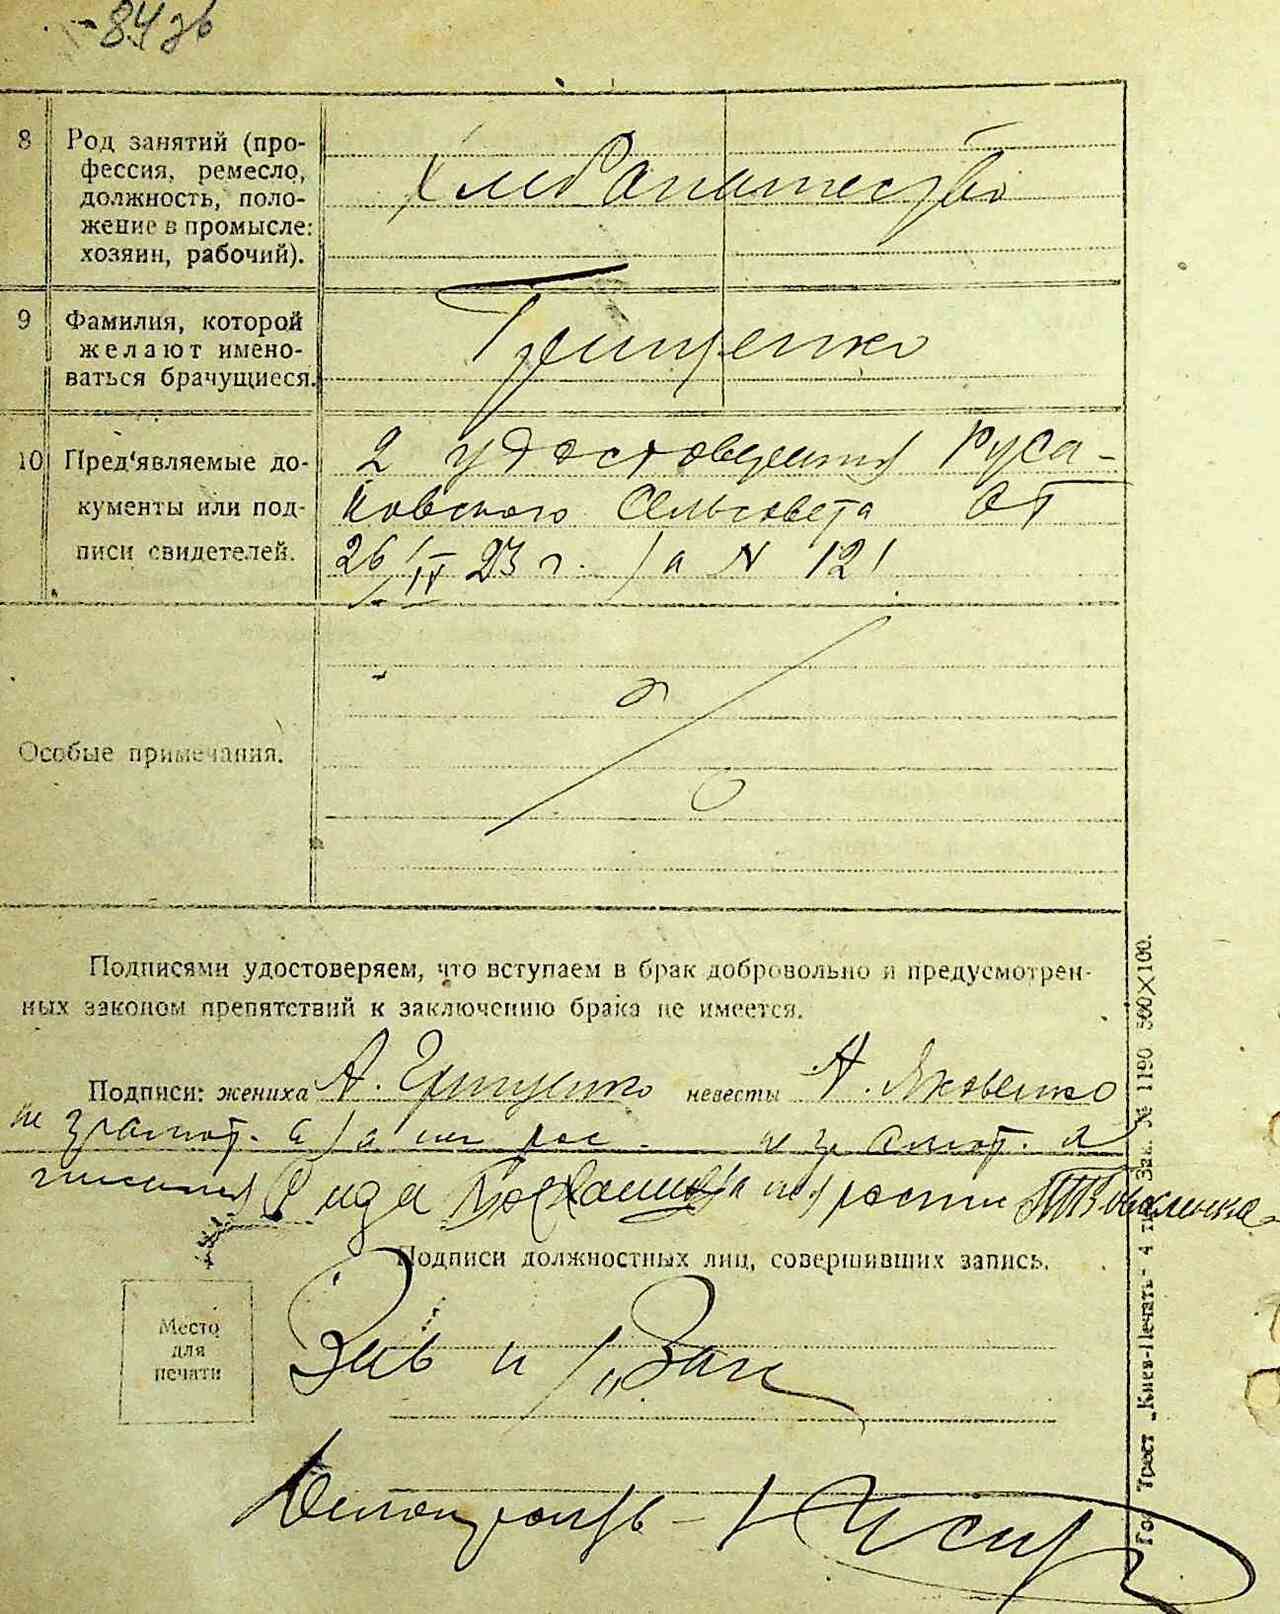 84 зв
8 Род занятий (про-
фессия, ремесло,
должность, поло-
жение в промысле:
хозяин, рабочий).
Хлебопашество
9 Фамилия, которой
желают имено-
ваться брачущиеся.
Грищенко
10 Пред'являемые до-
кументы или под-
писи свидетелей.
2 удостоверения Руса-
новского Сельсовета от
26/IV 23 г. за N 121
Особые примечания.
Подписями удостоверяем, что вступаем в брак добровольно и предусмотрен-
ных законом препятствий к заключению брака не имеется.
Подписи: жениха А. Грищенко невесты А. Яковенко
не грамот. а за них рос. не грамот. а
Подписи должностных лиц, совершивших запись.
Место
для
печати
Зав и/ Заг
Делопроизв -
Гос. Трест „Киев-Печать“ 4 Зак. № 1190 500×100.